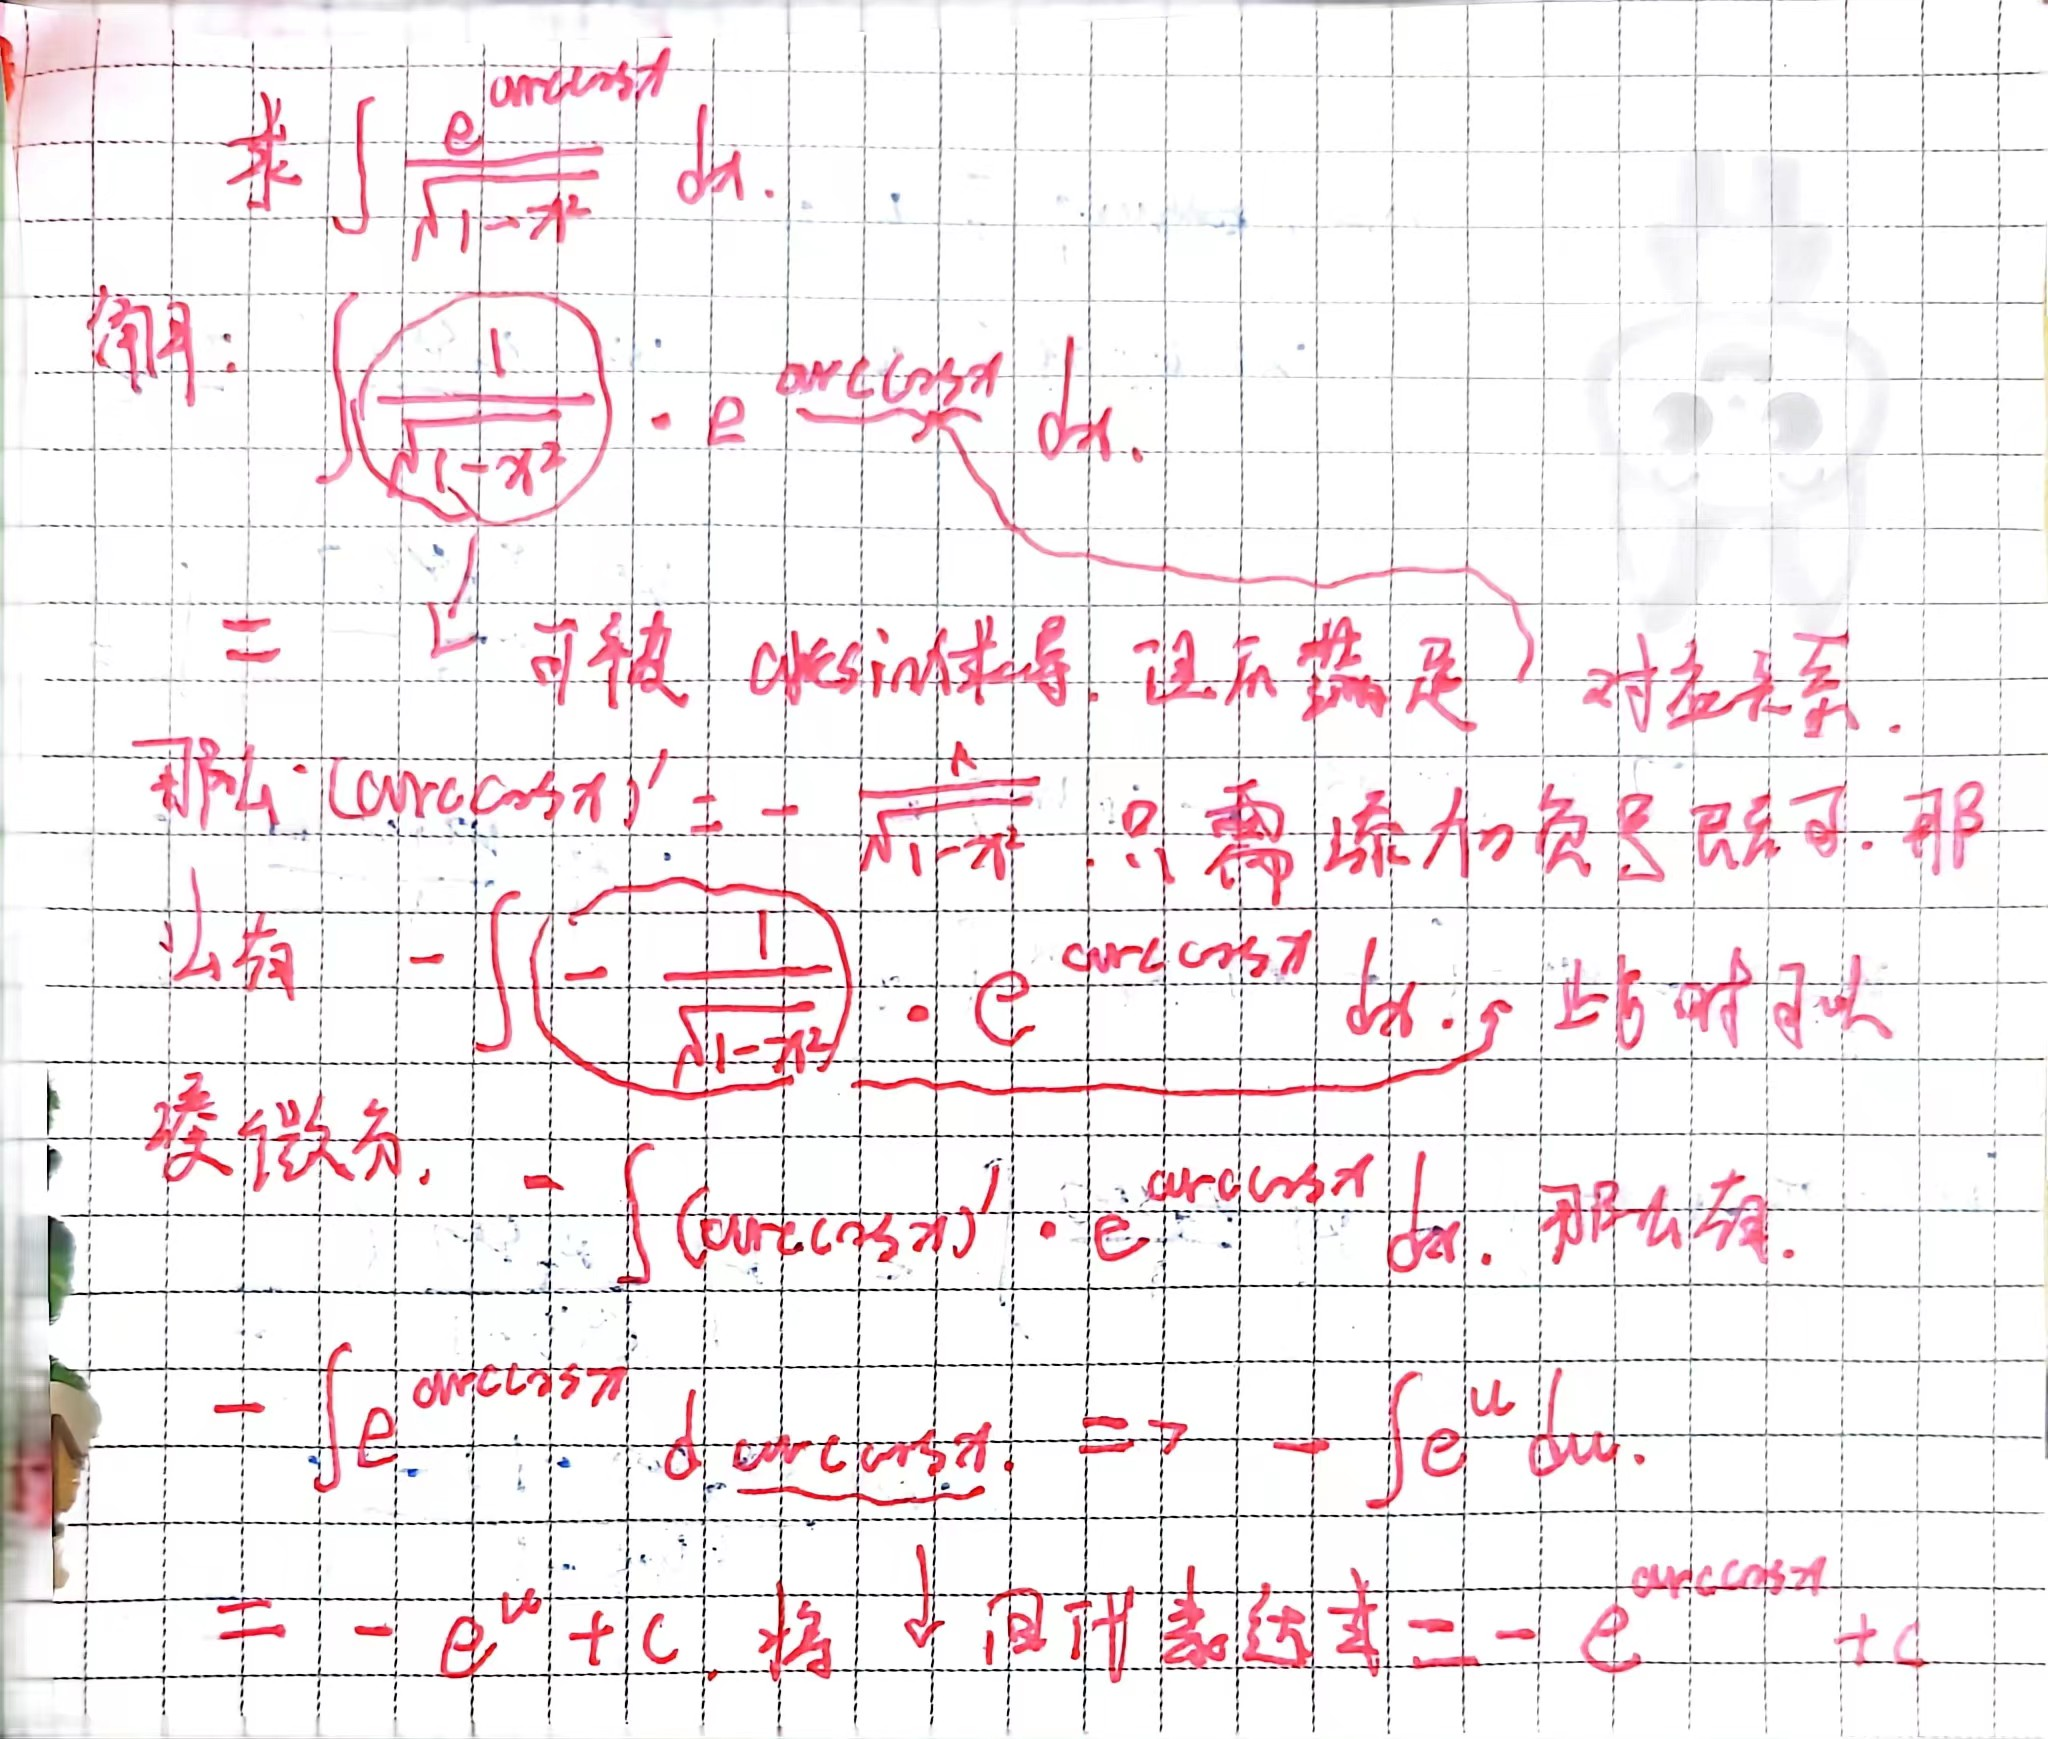 求 ∫ e^{arccosx} / √(1-x²) dx.
解: ∫ 1/√(1-x²) · e^{arccosx} dx.
= 可被 arcsin求导. 但不满足 对应关系.
那么·(arccosx)' = - 1/√(1-x²) . 只需添加负号既可. 那
么有 - ∫ (- 1/√(1-x²)) · e^{arccosx} dx. 此时可以
凑微分. - ∫ (arccosx)' · e^{arccosx} dx. 那么有.
- ∫ e^{arccosx} d arccosx. => - ∫ e^u du.
= - e^u + C. 将 ↓ 回代表达式 = - e^{arccosx} + C